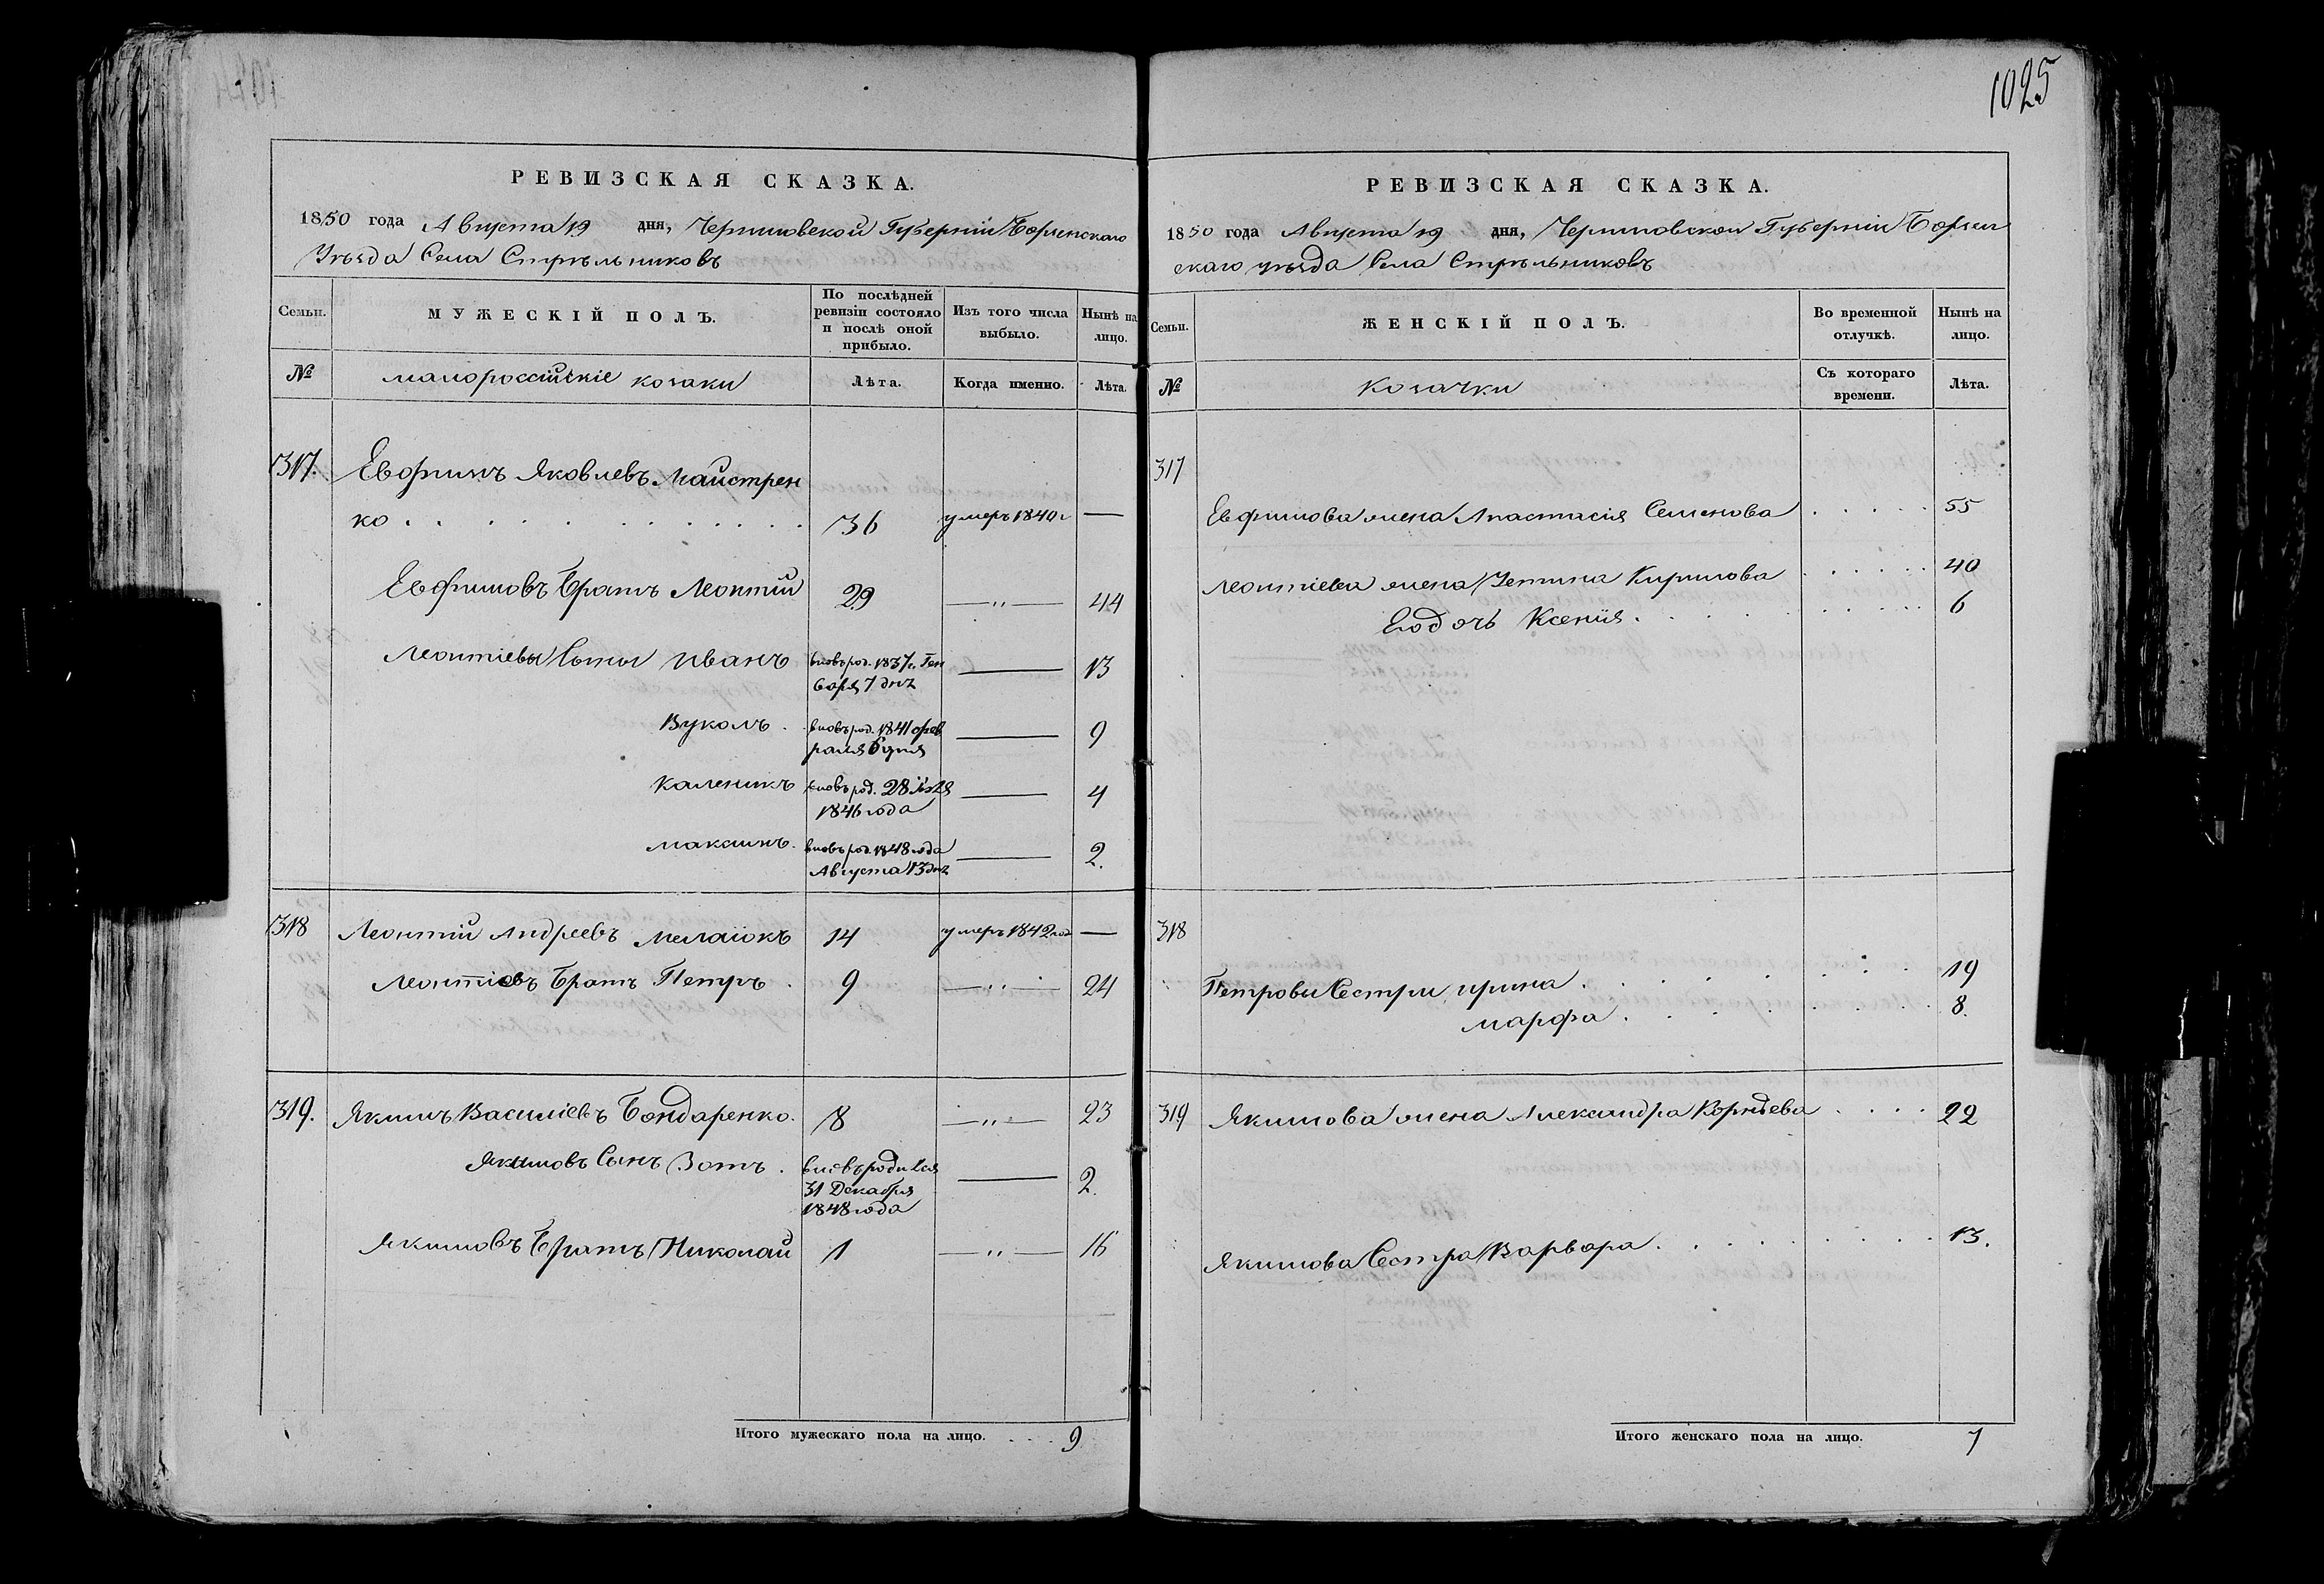 1025
РЕВИЗСКАЯ СКАЗКА.
1850 года Августа 19 дня, Черниговской Губерніи Борзенскаго
Уѣзда Села Стрѣльниковъ
Семьи.
МУЖЕСКІЙ ПОЛЪ.
По послѣдней
ревизіи состояло
и послѣ оной
прибыло.
Изъ того числа
выбыло.
Нынѣ на
лицо.
№
малороссійскіе козаки
Лѣта.
Когда именно.
Лѣта.
317. Евфимъ Яковлевъ Маистрен
ко . . . 36 умеръ 1840г —
Евфимовъ Братъ Леонтій 29 —„— 44
Леонтіевы Сыны Иванъ вновь род. 1837г. Ген
варя 7 дня — 13
Вуколъ . вновь род. 1841 фев
раля 6 дня — 9
Каленикъ вновь род. 28
1846 года — 4
Максимъ. вновь род. 1848 года
Августа 13 дня — 2.
318 Леонтій Андреевъ 14 умеръ 1842 год —
Леонтіевъ Братъ Петръ . 9 —„— 24
319. Якимъ Василіевъ Бондаренко. 8 —„— 23
Якимовъ Сынъ Зотъ . вновь родился
31 Декабря
1848 года — 2.
Якимовъ Братъ Николай 1 —„— 16
Итого мужескаго пола на лицо. . . . . 9
РЕВИЗСКАЯ СКАЗКА.
1850 года Августа 19 дня, Черниговской Губерніи Борзен
скаго уѣзда Села Стрѣльниковъ
Семьи.
ЖЕНСКІЙ ПОЛЪ.
Во временной
отлучкѣ.
Нынѣ на
лицо.
№
Козачки
Съ котораго
времени.
Лѣта.
317
Евфимова жена Анастасія Семенова . . . . . 55
Леонтіева жена Устина Кирилова . . . . . 40
Егодочь Ксенія. . . . . 6
318
Петровы Сестры ирина . . . . . 19
марфа . . . . . 8.
319 Якимова жена Александра Корнѣева . . . . 22
Якимова Сестра Варвара . . . . . 13.
Итого женскаго пола на лицо. 7